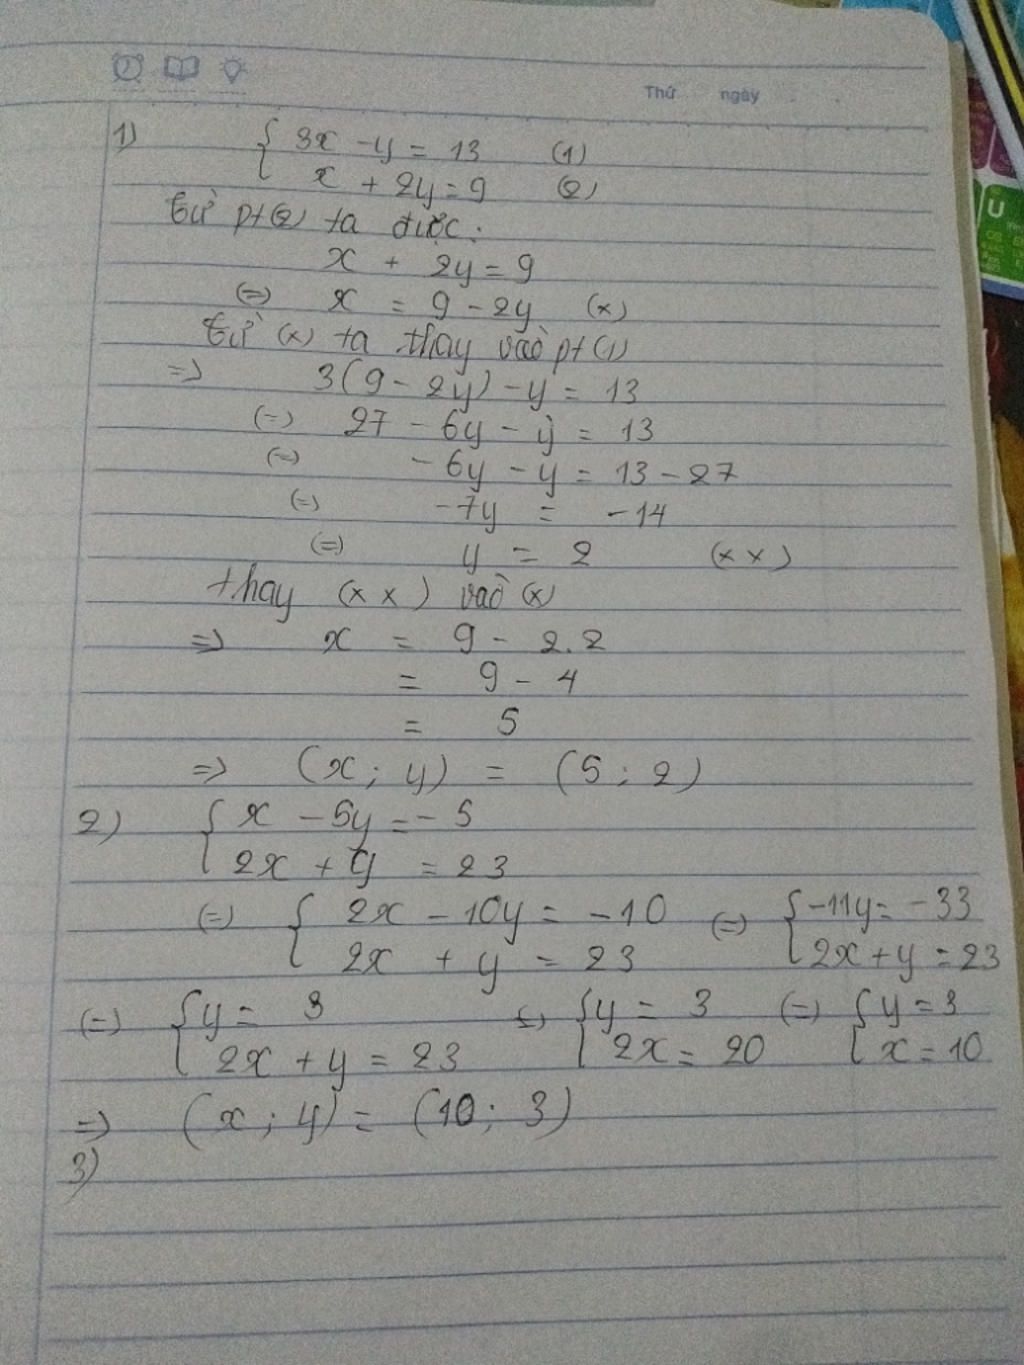 Thứ ngày
1) { 3x - y = 13 (1)
x + 2y = 9 (2)
từ pt(2) ta được:
x + 2y = 9
(=) x = 9 - 2y (x)
từ (x) ta thay vào pt(1)
=> 3(9 - 2y) - y = 13
(=) 27 - 6y - y = 13
(=) -6y - y = 13 - 27
(=) -7y = -14
(=) y = 2 (x x)
thay (x x) vào (x)
=> x = 9 - 2.2
= 9 - 4
= 5
=> (x ; y) = (5 ; 2)
2) { x - 5y = -5
2x + y = 23
(=) { 2x - 10y = -10 (=) { -11y = -33
2x + y = 23 2x + y = 23
(=) { y = 3 (=) { y = 3 (=) { y = 3
2x + y = 23 2x = 20 x = 10
=> (x ; y) = (10 ; 3)
3)
U